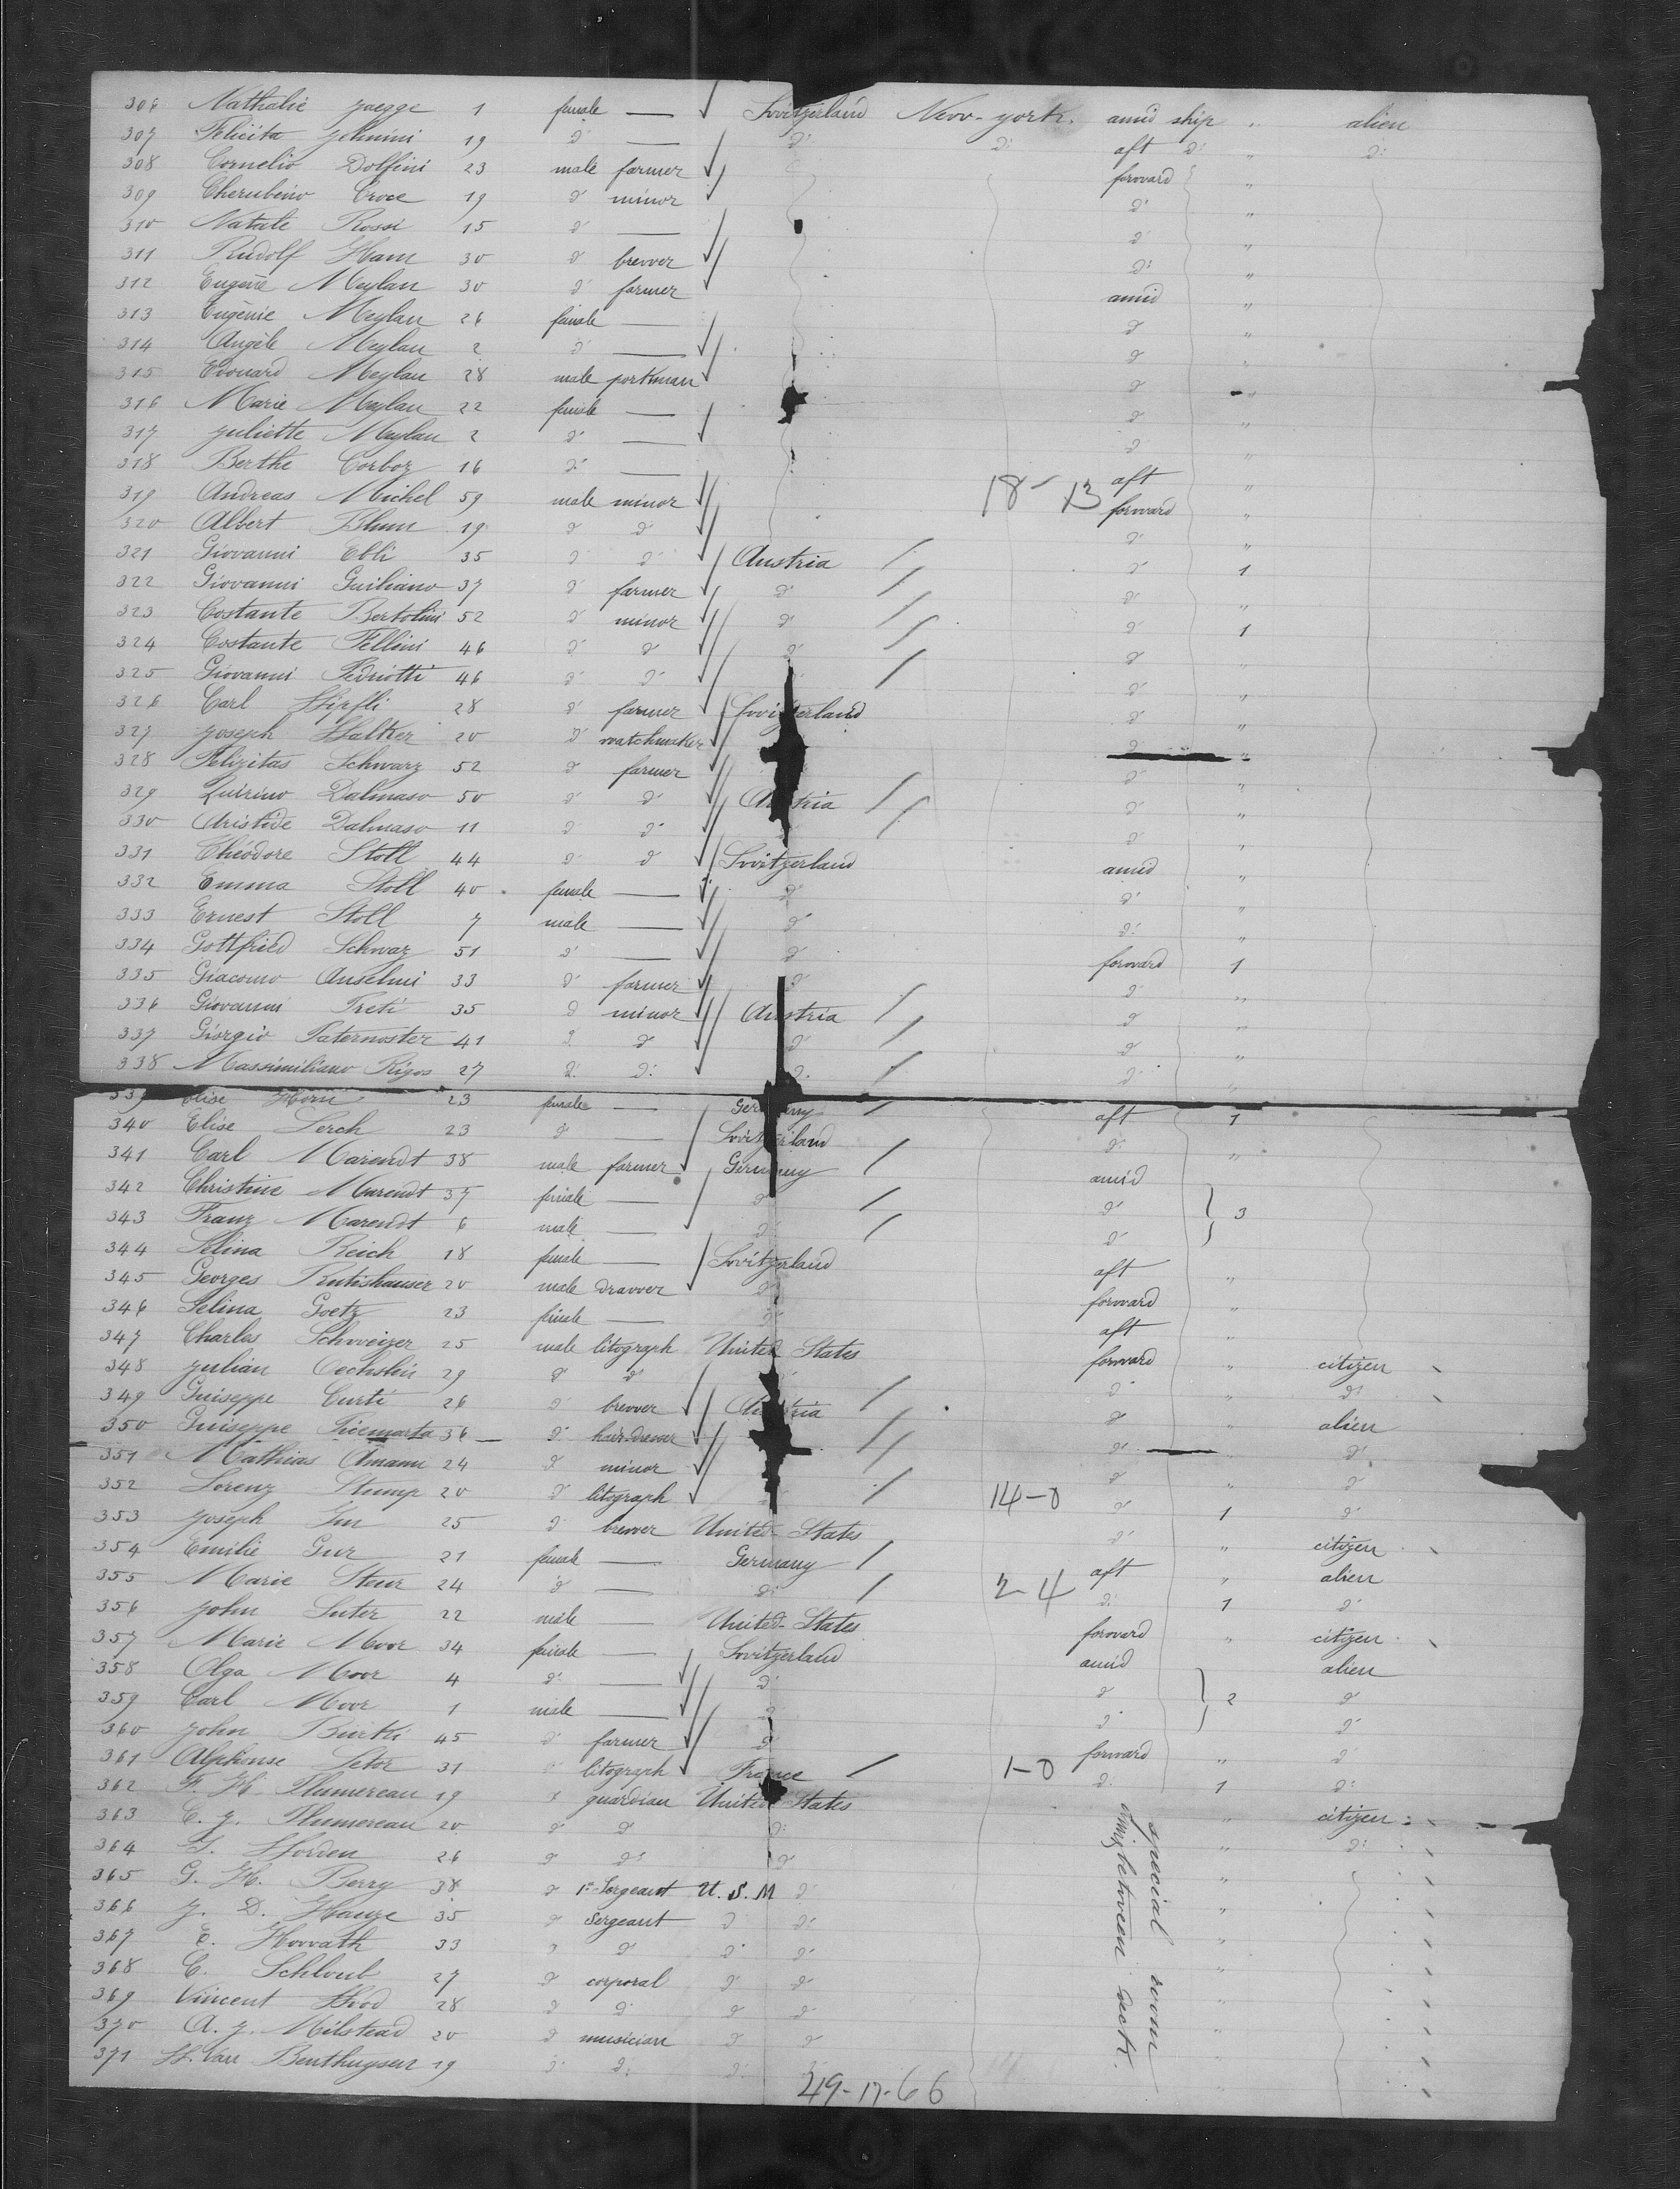 306 Nathalie Jaegge 1 female — Switzerland New-york. amid ship " alien
307 Felicita 19 d° — d: d: aft d: " d:
308 Cornelio Dolfini 23 male farmer forward "
309 Cherubino Croce 19 d° minor d° "
310 Natale Rossi 15 d° — d° "
311 Rudolf Ham 30 d° brewer d: "
312 Eugène Meylan 30 d° farmer amid "
313 Eugènie Meylan 26 female — d° "
314 Angèle Meylan 2 d° — d° "
315 Edouard Meylan 28 male portman d° "
316 Marie Meylan 22 female — d° "
317 Juliette Meylan 2 d° — d° "
318 Berthe Corboz 16 d° — aft "
319 Andreas Michel 59 male minor 18-13 forward "
320 Albert Blum 19 d° d° d° "
321 Giovanni Ebli 35 d° d° Austria d° 1
322 Giovanni Guiliano 37 d° farmer d° d° "
323 Costante Bertolini 52 d° minor d° d° 1
324 Costante Pellini 46 d° d° d° d° "
325 Giovanni Pedriotti 46 d° d° d° "
326 Carl Stipfli 28 d° farmer Switzerland d° "
327 Joseph Stalker 20 d° watchmaker d° "
328 Felizitas Schwarz 52 d° farmer d° "
329 Quirino Dalmaso 50 d° d° Austria d° "
330 Aristide Dalmaso 11 d° d° d° "
331 Théodore Stoll 44 d° d° Switzerland amid "
332 Emma Stoll 40 female — d° d° "
333 Ernest Stoll 7 male — d° d: "
334 Gottfried Schwaz 51 d° — d° forward 1
335 Giacomo Anselmi 33 d° farmer d° d° "
336 Giovanni Preti 35 d° minor Austria d° "
337 Giorgio Paternoster 41 d. d° d° d° "
338 Massimiliano Rigos 27 d. d: d. d° "
339 Elise Horni 23 female — Germany aft 1
340 Elise Lerch 23 d° — Switzerland d° "
341 Carl Marendt 38 male farmer Germany amid
342 Christine Marendt 37 female — d° d° 3
343 Franz Marendt 6 male — d° d°
344 Selina Reich 18 female — Switzerland aft "
345 Georges Rutishauser 20 male drawer d° forward "
346 Selina Goetz 23 female — d° aft "
347 Charles Schweizer 25 male litograph United States forward " citizen
348 Julian Oechslin 29 d° d° d° " d°
349 Guiseppe Curti 26 d° brewer Austria d° " alien
350 Guiseppe 36 d° hair-dresser d° " d°
351 Mathias Amann 24 d° minor d° " d°
352 Lorenz Stump 20 d° litograph 14-0 d° 1 d°
353 Joseph 25 d° brewer United-States d° " citizen
354 Emilie Gur 21 female — Germany aft " alien
355 Marie Steur 24 d° — d: 2-4 d: 1 d°
356 John Suter 22 male — United-States forward " citizen
357 Marie Moor 34 female — Switzerland amid alien
358 Olga Moor 4 d: — d° d° 2 d°
359 Carl Moor 1 male — d° d° d°
360 John Burki 45 d° farmer d° forward " d°
361 Alphonse Setor 31 litograph France 1-0 d: 1 d:
362 F. H. Plumereau 19 d° guardian United States " citizen
363 C. J. Plumereau 20 d° d° d: " d:
364 Horden 26 d° d° d° "
365 G. H. Berry 38 d° 1st Sergeant U. S. M d° "
366 J. D. Hauze 35 d° sergeant d° d: "
367 E. Horvath 33 d° d° d° d° "
368 C. Schloub 27 d° corporal d° d° "
369 Vincent Hood 28 d° d° d° d° "
370 A. J. Milstead 20 d° musician d° d° "
371 H. Van Benthuysen 19 d: d: d:
special room
between deck.
49-17-66